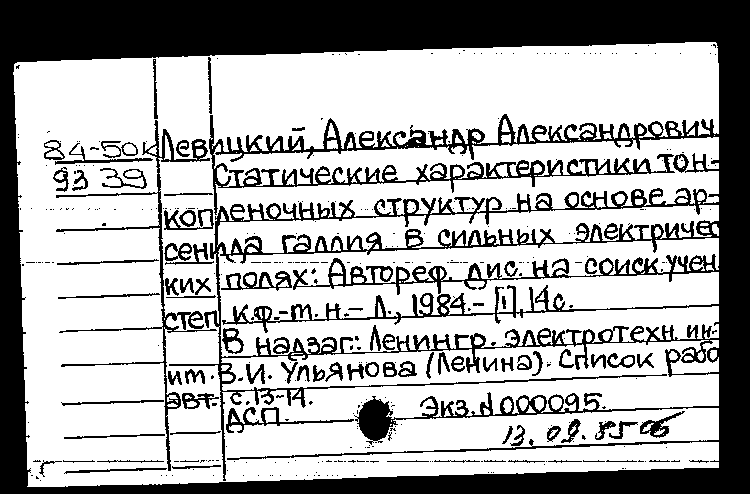 84-50к Левицкий, Александр Александрович
93 39 Статические характеристики тон-
копленочных структур на основе ар-
сенида галлия в сильных электричес
ких полях: Автореф. дис. на соиск. учен.
степ. к.ф.-т.н. - Л., 1984. - [1], 14с.
В надзаг.: Ленингр. электротехн. ин-
им. В.И. Ульянова (Ленина). Список рабо
авт. с.13-14.
ДСП. Экз. N 000095.
13.09.85